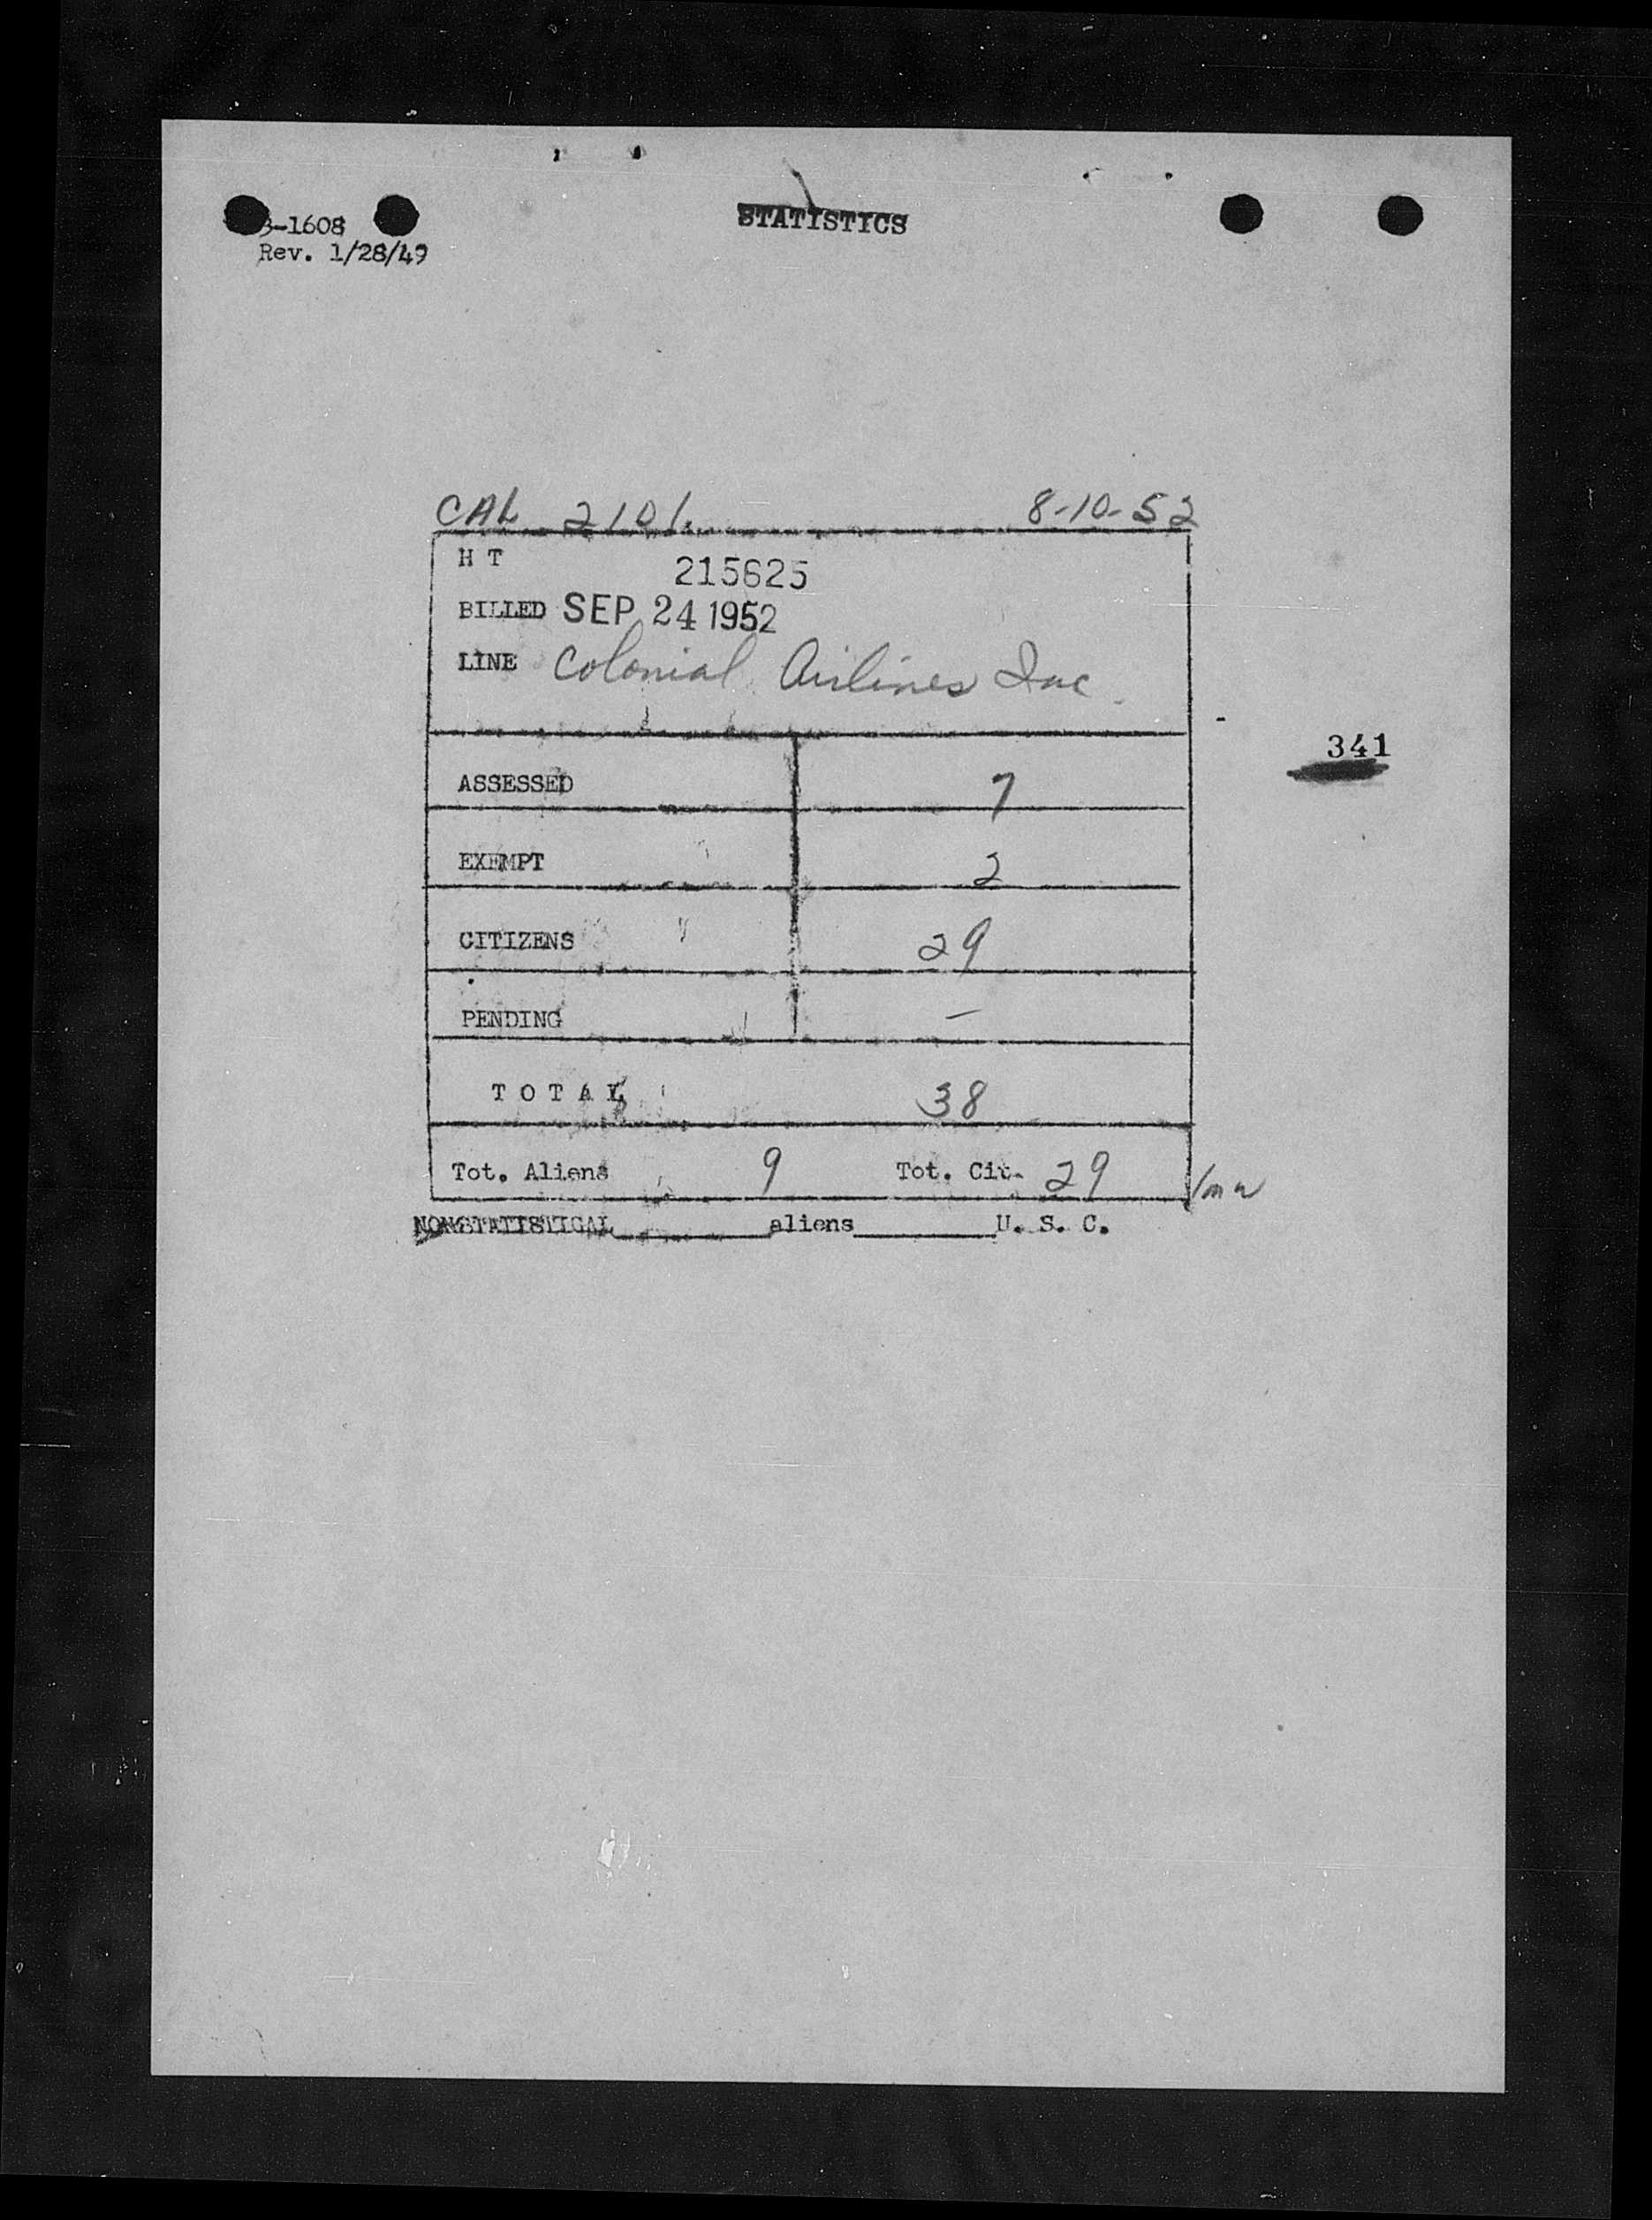 3-1608
STATISTICS
Rev. 1/28/49
CAL 2101 8-10-52
H T 215625
BILLED SEP 24 1952
LINE Colonial Airlines Inc
341
ASSESSED 7
EXEMPT 2
CITIZENS 29
PENDING –
T O T A L 38
Tot. Aliens 9 Tot. Cit. 29
NONSTATISTICAL aliens U. S. C.